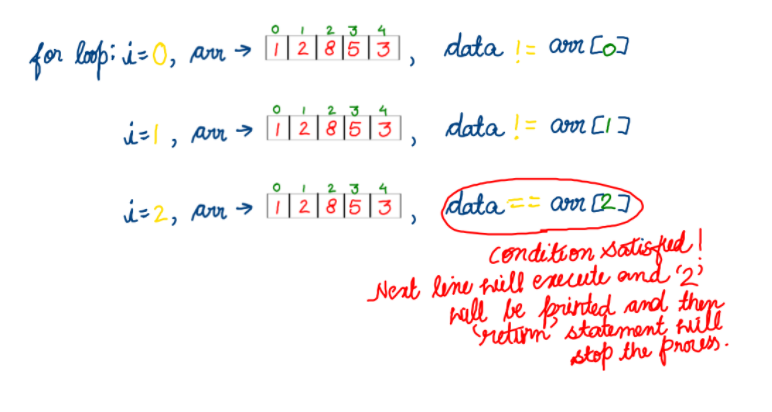 0 1 2 3 4
for loop: i=0, arr → 1 2 8 5 3 , data != arr[0]
0 1 2 3 4
i=1, arr → 1 2 8 5 3 , data != arr[1]
0 1 2 3 4
i=2, arr → 1 2 8 5 3 , data == arr[2]
condition satisfied!
Next line will execute and '2'
will be printed and then
'return' statement will
stop the process.